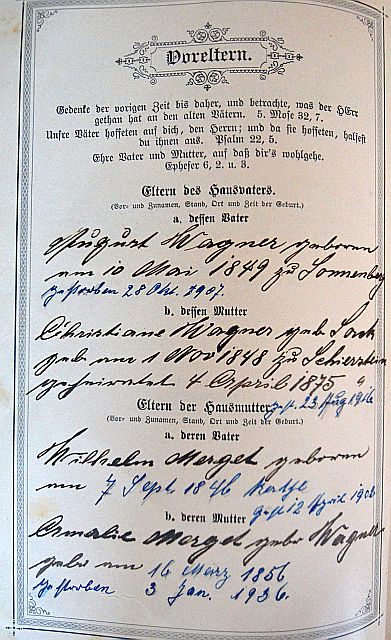 Voreltern.
Gedenke der vorigen Zeit bis daher, und betrachte, was der HErr
gethan hat an den alten Vätern. 5. Mose 32, 7.
Unsre Väter hofften auf dich, den Herrn; und da sie hofften, halfest
du ihnen aus. Psalm 22, 5.
Ehre Vater und Mutter, auf daß dir's wohlgehe.
Epheser 6, 2. u. 3.
Eltern des Hausvaters.
(Vor- und Zunamen, Stand, Ort und Zeit der Geburt.)
a. dessen Vater
August Wagner geboren
am 10 Mai 1849 zu Sonnenberg
gestorben 28 Okt. 1907.
b. dessen Mutter
Christiane Wagner geb
geb am 1 Nov 1848 zu Schierstein
geheiratet 4 April 1875
gest. 23 Aug 1916
Eltern der Hausmutter
(Vor- und Zunamen, Stand, Ort und Zeit der Geburt.)
a. deren Vater
Wilhelm Merget geboren
am 7 Sept 1846
gest 12 April 1906
b. deren Mutter
Amalie Merget gebr Wagner
gebr am 16 März 1856
gestorben 3 Jan. 1936.